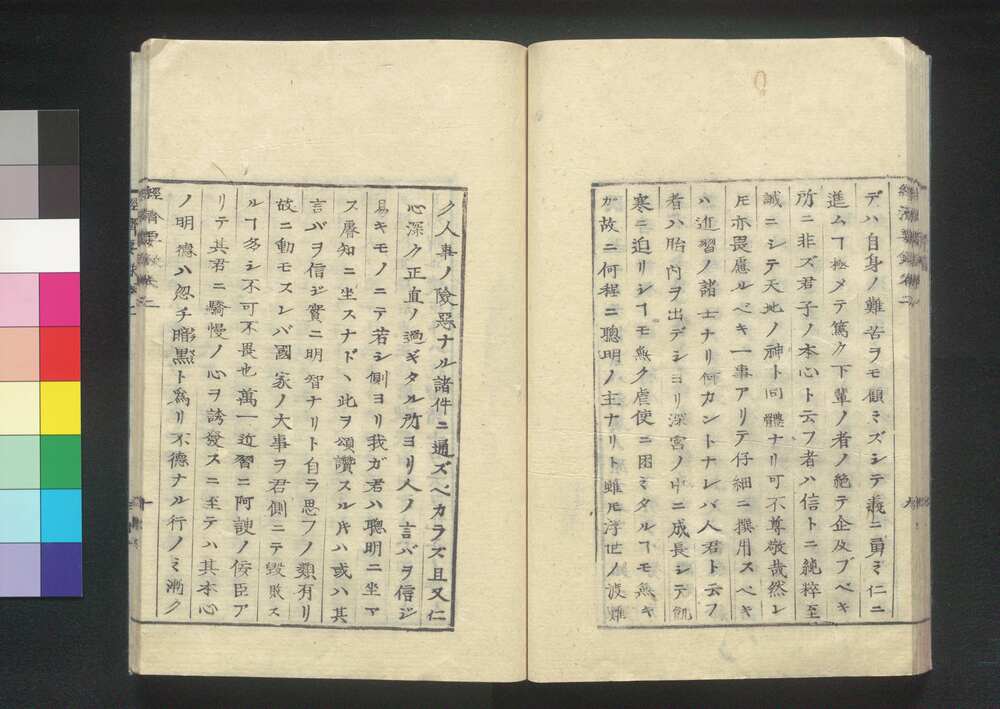 デハ自身ノ難苦ヲモ顧ミズシテ義ニ勇ミ仁ニ
進ムヿ極メテ篤ク下輩ノ者ノ絶テ企及ブベキ
所ニ非ズ君子ノ本心ト云フ者ハ信トニ純粹至
誠ニシテ天地ノ神ト同體ナリ可不尊敬哉然レ
𪜈亦畏慮ルベキ一事アリテ仔細ニ撰用スベキ
ハ近習ノ諸士ナリ何カントナレバ人君ト云フ
者ハ胎内ヲ出デシヨリ深宮ノ中ニ成長シテ飢
寒ニ迫リシヿモ無ク虐使ニ困ミタルヿモ無キ
ガ故ニ何程ニ聰明ノ主ナリト雖𪜈浮世ノ渡難
ク人事ノ險惡ナル諸件ニ通ズベカラズ且又仁
心深ク正直ノ過ギタル所ヨリ人ノ言バヲ信ジ
易キモノニテ若シ側ヨリ我ガ君ハ聰明ニ坐マ
ス睿知ニ坐スナド丶此ヲ頌讚スル𪜈ハ或ハ其
言バヲ信ジ實ニ明智ナリト自ラ思フノ類有リ
故ニ動モスレバ國家ノ大事ヲ君側ニテ毀敗ス
ルヿ多シ不可不畏也萬一近習ニ阿諛ノ佞臣ア
リテ其君ニ驕慢ノ心ヲ誘發スニ至テハ其本心
ノ明德ハ忽チ暗黑ト爲リ不德ナル行ノミ漸ク
經濟要